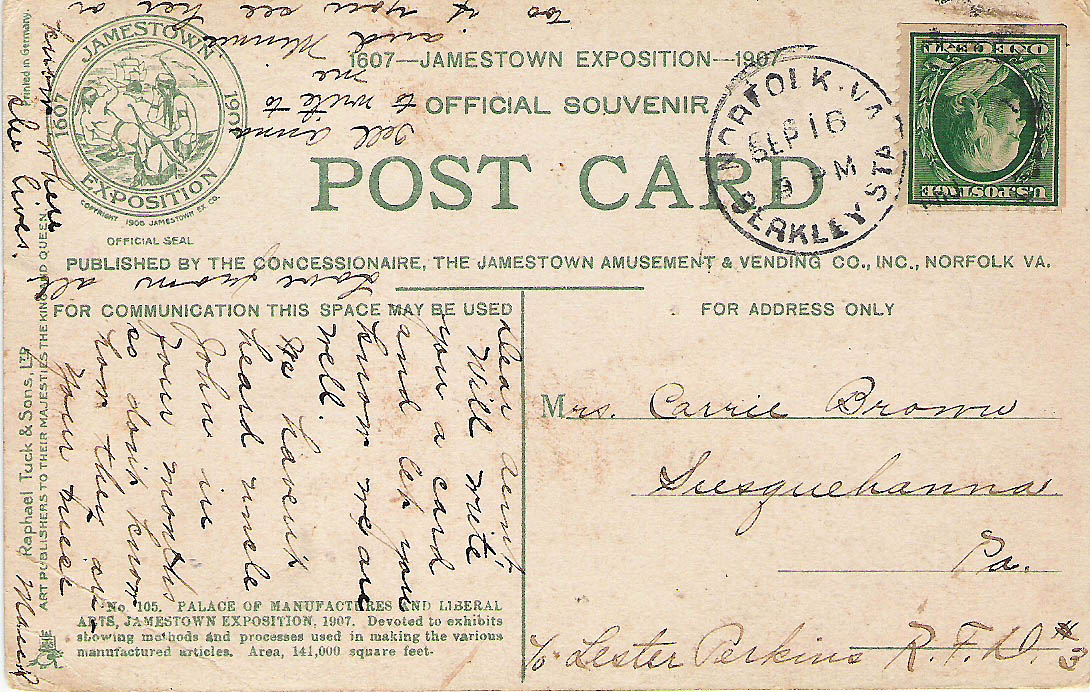 1607—JAMESTOWN EXPOSITION—1907
OFFICIAL SOUVENIR
POST CARD
JAMESTOWN
1607
1907
EXPOSITION
COPYRIGHT 1906 JAMESTOWN EX. CO.
OFFICIAL SEAL
PUBLISHED BY THE CONCESSIONAIRE, THE JAMESTOWN AMUSEMENT & VENDING CO., INC., NORFOLK VA.
FOR COMMUNICATION THIS SPACE MAY BE USED
FOR ADDRESS ONLY
NORFOLK, VA.
SEP 16
9 PM
BERKLEY STA
U.S. POSTAGE
ONE CENT
Dear Aunt,
Will write
you a card
and let you
know we are
well.
We havent
heard uncle
John in
four months
so don't know
how they are
Your niece
Maud
Love from al
Tell Anna
to write to
me
and Minnie
to if you see her or
know where
she lives.
Mrs. Carrie Brown
Susquehanna
Pa.
c/o Lester Perkins R.F.D. #3
No. 105. PALACE OF MANUFACTURES AND LIBERAL
ARTS, JAMESTOWN EXPOSITION, 1907. Devoted to exhibits
showing methods and processes used in making the various
manufactured articles. Area, 141,000 square feet-
Raphael Tuck & Sons, Ltd
ART PUBLISHERS TO THEIR MAJESTIES THE KING AND QUEEN
Printed in Germany.